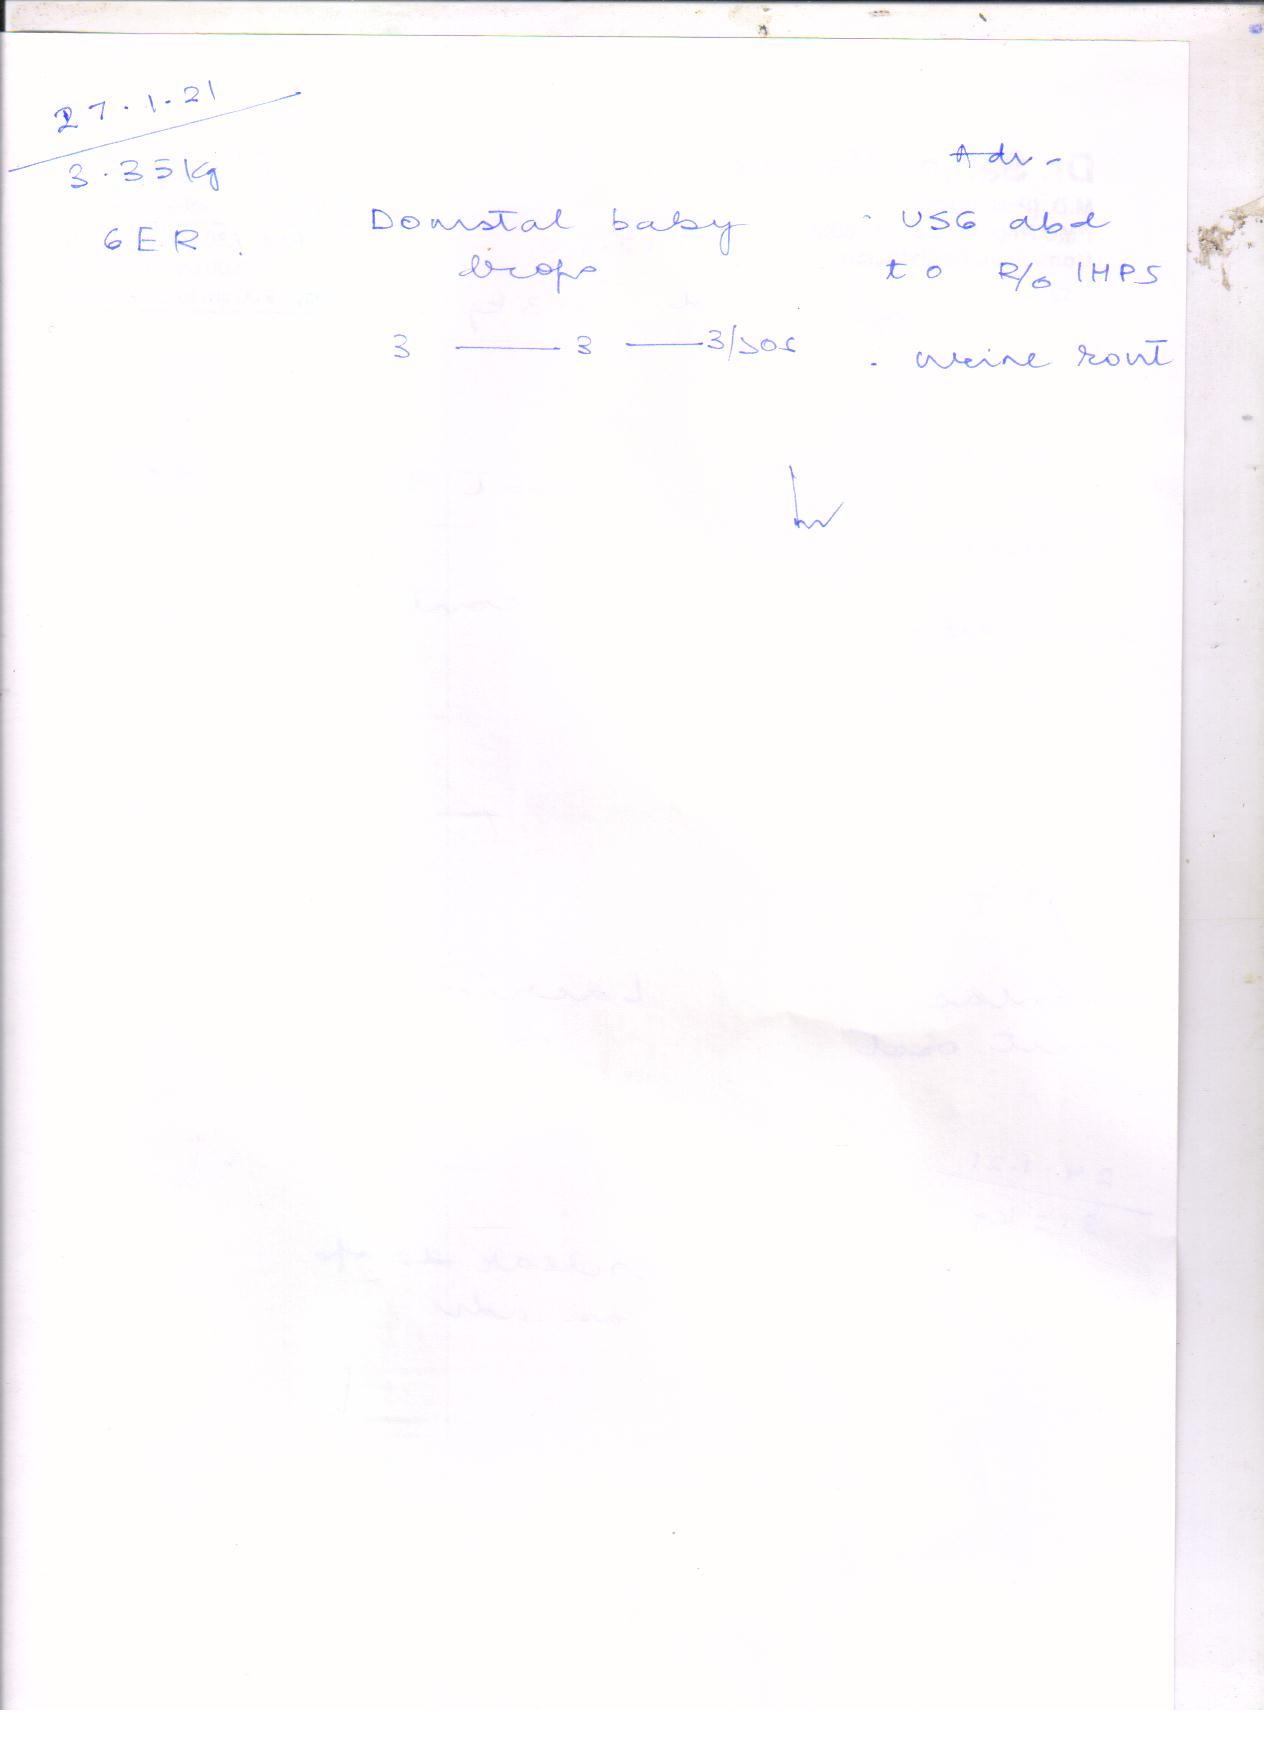 27.1.21
3.35kg
GER.
Domstal baby
drops
3 — 3 — 3/SOS
Adv -
. USG abd
to R/o IHPS
. urine rout